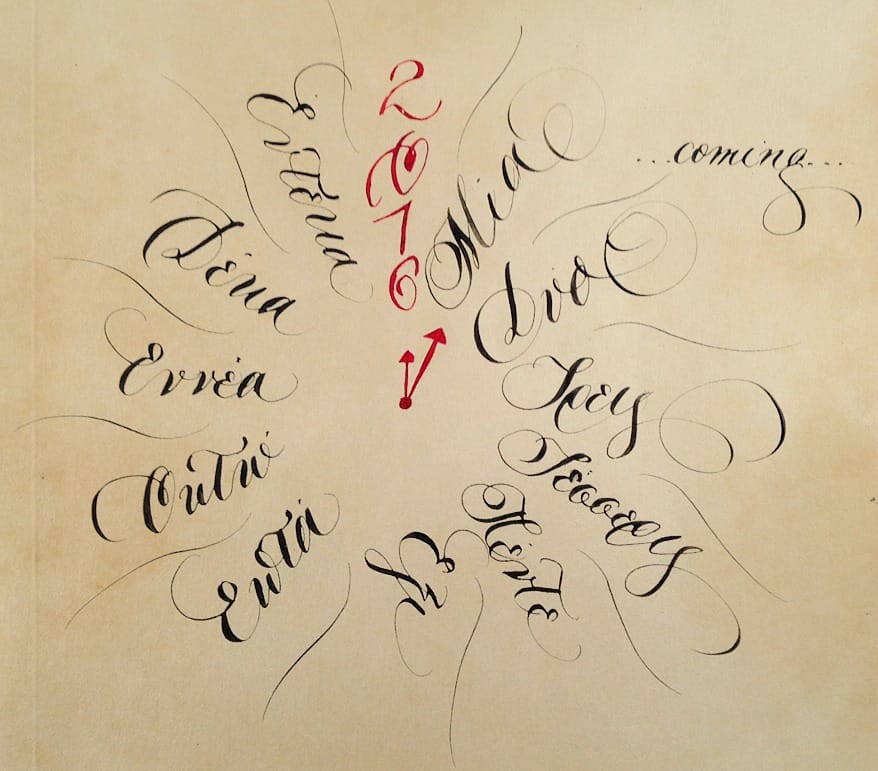 2016
Μία
...coming...
Δύο
Τρεις
Τέσσερις
Πέντε
Έξι
Επτά
Οκτώ
Εννέα
Δέκα
Έντεκα